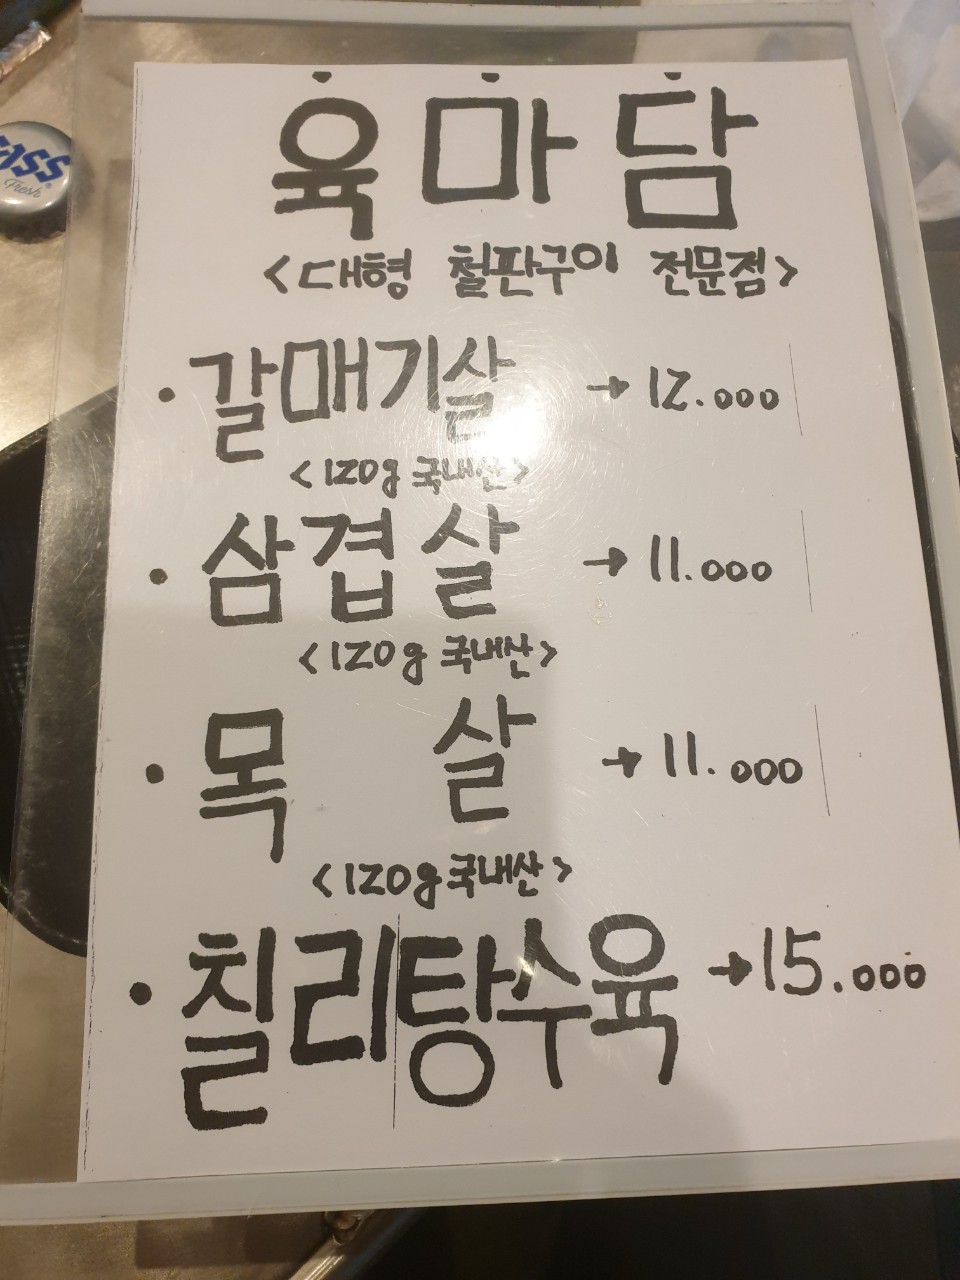 육마담
<대형 철판구이 전문점>
· 갈매기살 → 12.000
<120g 국내산>
· 삼겹살 → 11.000
<120g 국내산>
· 목 살 → 11.000
<120g 국내산>
· 칠리탕수육 → 15.000
CASS
Fresh